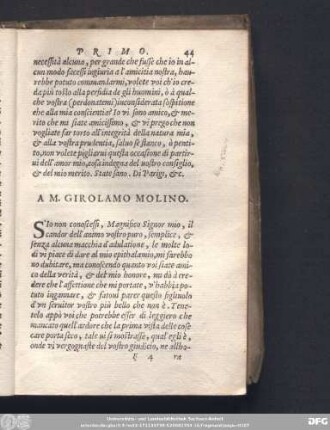 PRIMO. 44
necessità alcuna, per grande che fusse che io in al-
cun modo facessi ingiuria a l'amicitia nostra, hau-
rebbe potuto commandarmi, volete voi ch'io cre-
da più tosto alla perfidia de gli huomini, ò à qual-
che vostra (perdonatemi) inconsiderata sospitione
che alla mia conscientia? Io vi sono amico, & me-
rito che mi siate amicissimo, & vi prego che non
vogliate far torto all'integrità della natura mia,
& alla vostra prudentia, saluo se stanco, ò penti-
to, non volete pigliarui questa occasione di partir-
ui dell'amor mio, cosa indegna del vostro consiglio,
& del mio merito. State sano. Di Parigi, &c.
A M. GIROLAMO MOLINO.
S'Io non conoscessi, Magnifico Signor mio, il
candor dell'animo vostro puro, semplice, &
senza alcuna macchia d'adulatione, le molte lo-
di vi piace di dare al mio epithalamio, mi farebbeno
dubitare, ma conoscendo quanto voi siate ami-
co della verità, & del mio honore, mi dà à cre-
dere che l'affettione che mi portate, v'habbia po-
tuto ingannare, & fattoui parer questo figliuolo
d'un seruitor vostro più bello che non è. Tene-
telo appò voi che potrebbe esser di leggiero che
mancato quell'ardore che la prima vista delle cose
care porta seco, tale ui si mostrasse, qual'egli è,
onde vi vergognaste del vostro giuditio, ne allho-
4 ra